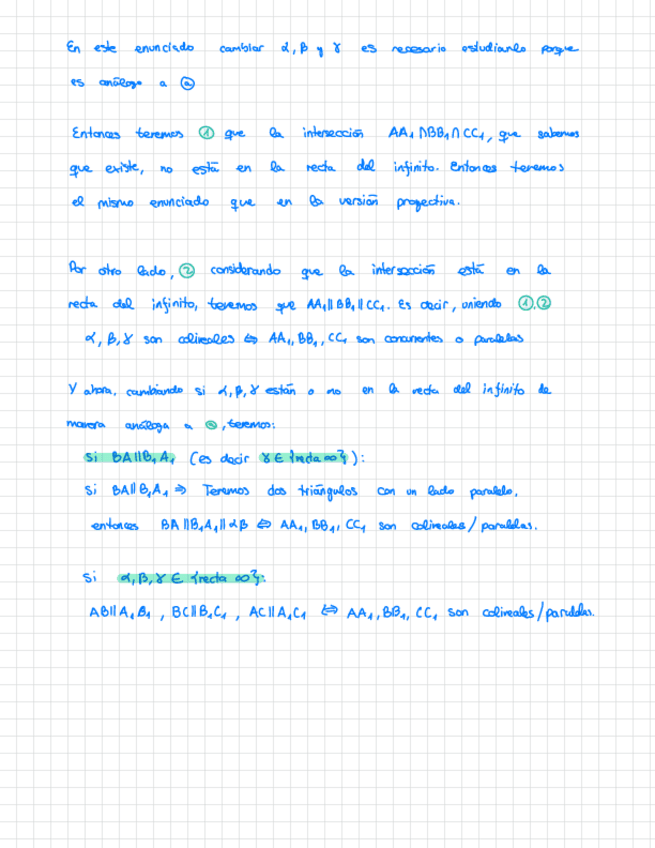 En este enunciado cambiar α, β y γ es necesario estudiarlo porque
es análogo a ⓐ
Entonces teremos ① que la intersección AA₁∩BB₁∩CC₁, que sabemos
que existe, no está en la recta del infinito. Entonces teremos
el mismo enunciado que en la versión proyectiva.
Por otro lado, ② considerando que la intersección está en la
recta del infinito, teremos que AA₁∥BB₁∥CC₁. Es decir, uniendo ①,②
α, β, γ son colineales ⇔ AA₁, BB₁, CC₁ son concurrentes o paralelas
Y ahora, cambiando si α, β, γ están o no en la recta del infinito de
manera análoga a ⓐ, teremos:
Si BA∥B₁A₁ (es decir γ ∈ {recta ∞}):
Si BA∥B₁A₁ ⇒ Teremos dos triángulos con un lado paralelo,
entonces BA∥B₁A₁∥αβ ⇔ AA₁, BB₁, CC₁ son colineales/paralelas.
Si α, β, γ ∈ {recta ∞}:
AB∥A₁B₁, BC∥B₁C₁, AC∥A₁C₁ ⇔ AA₁, BB₁, CC₁ son colineales/paralelas.